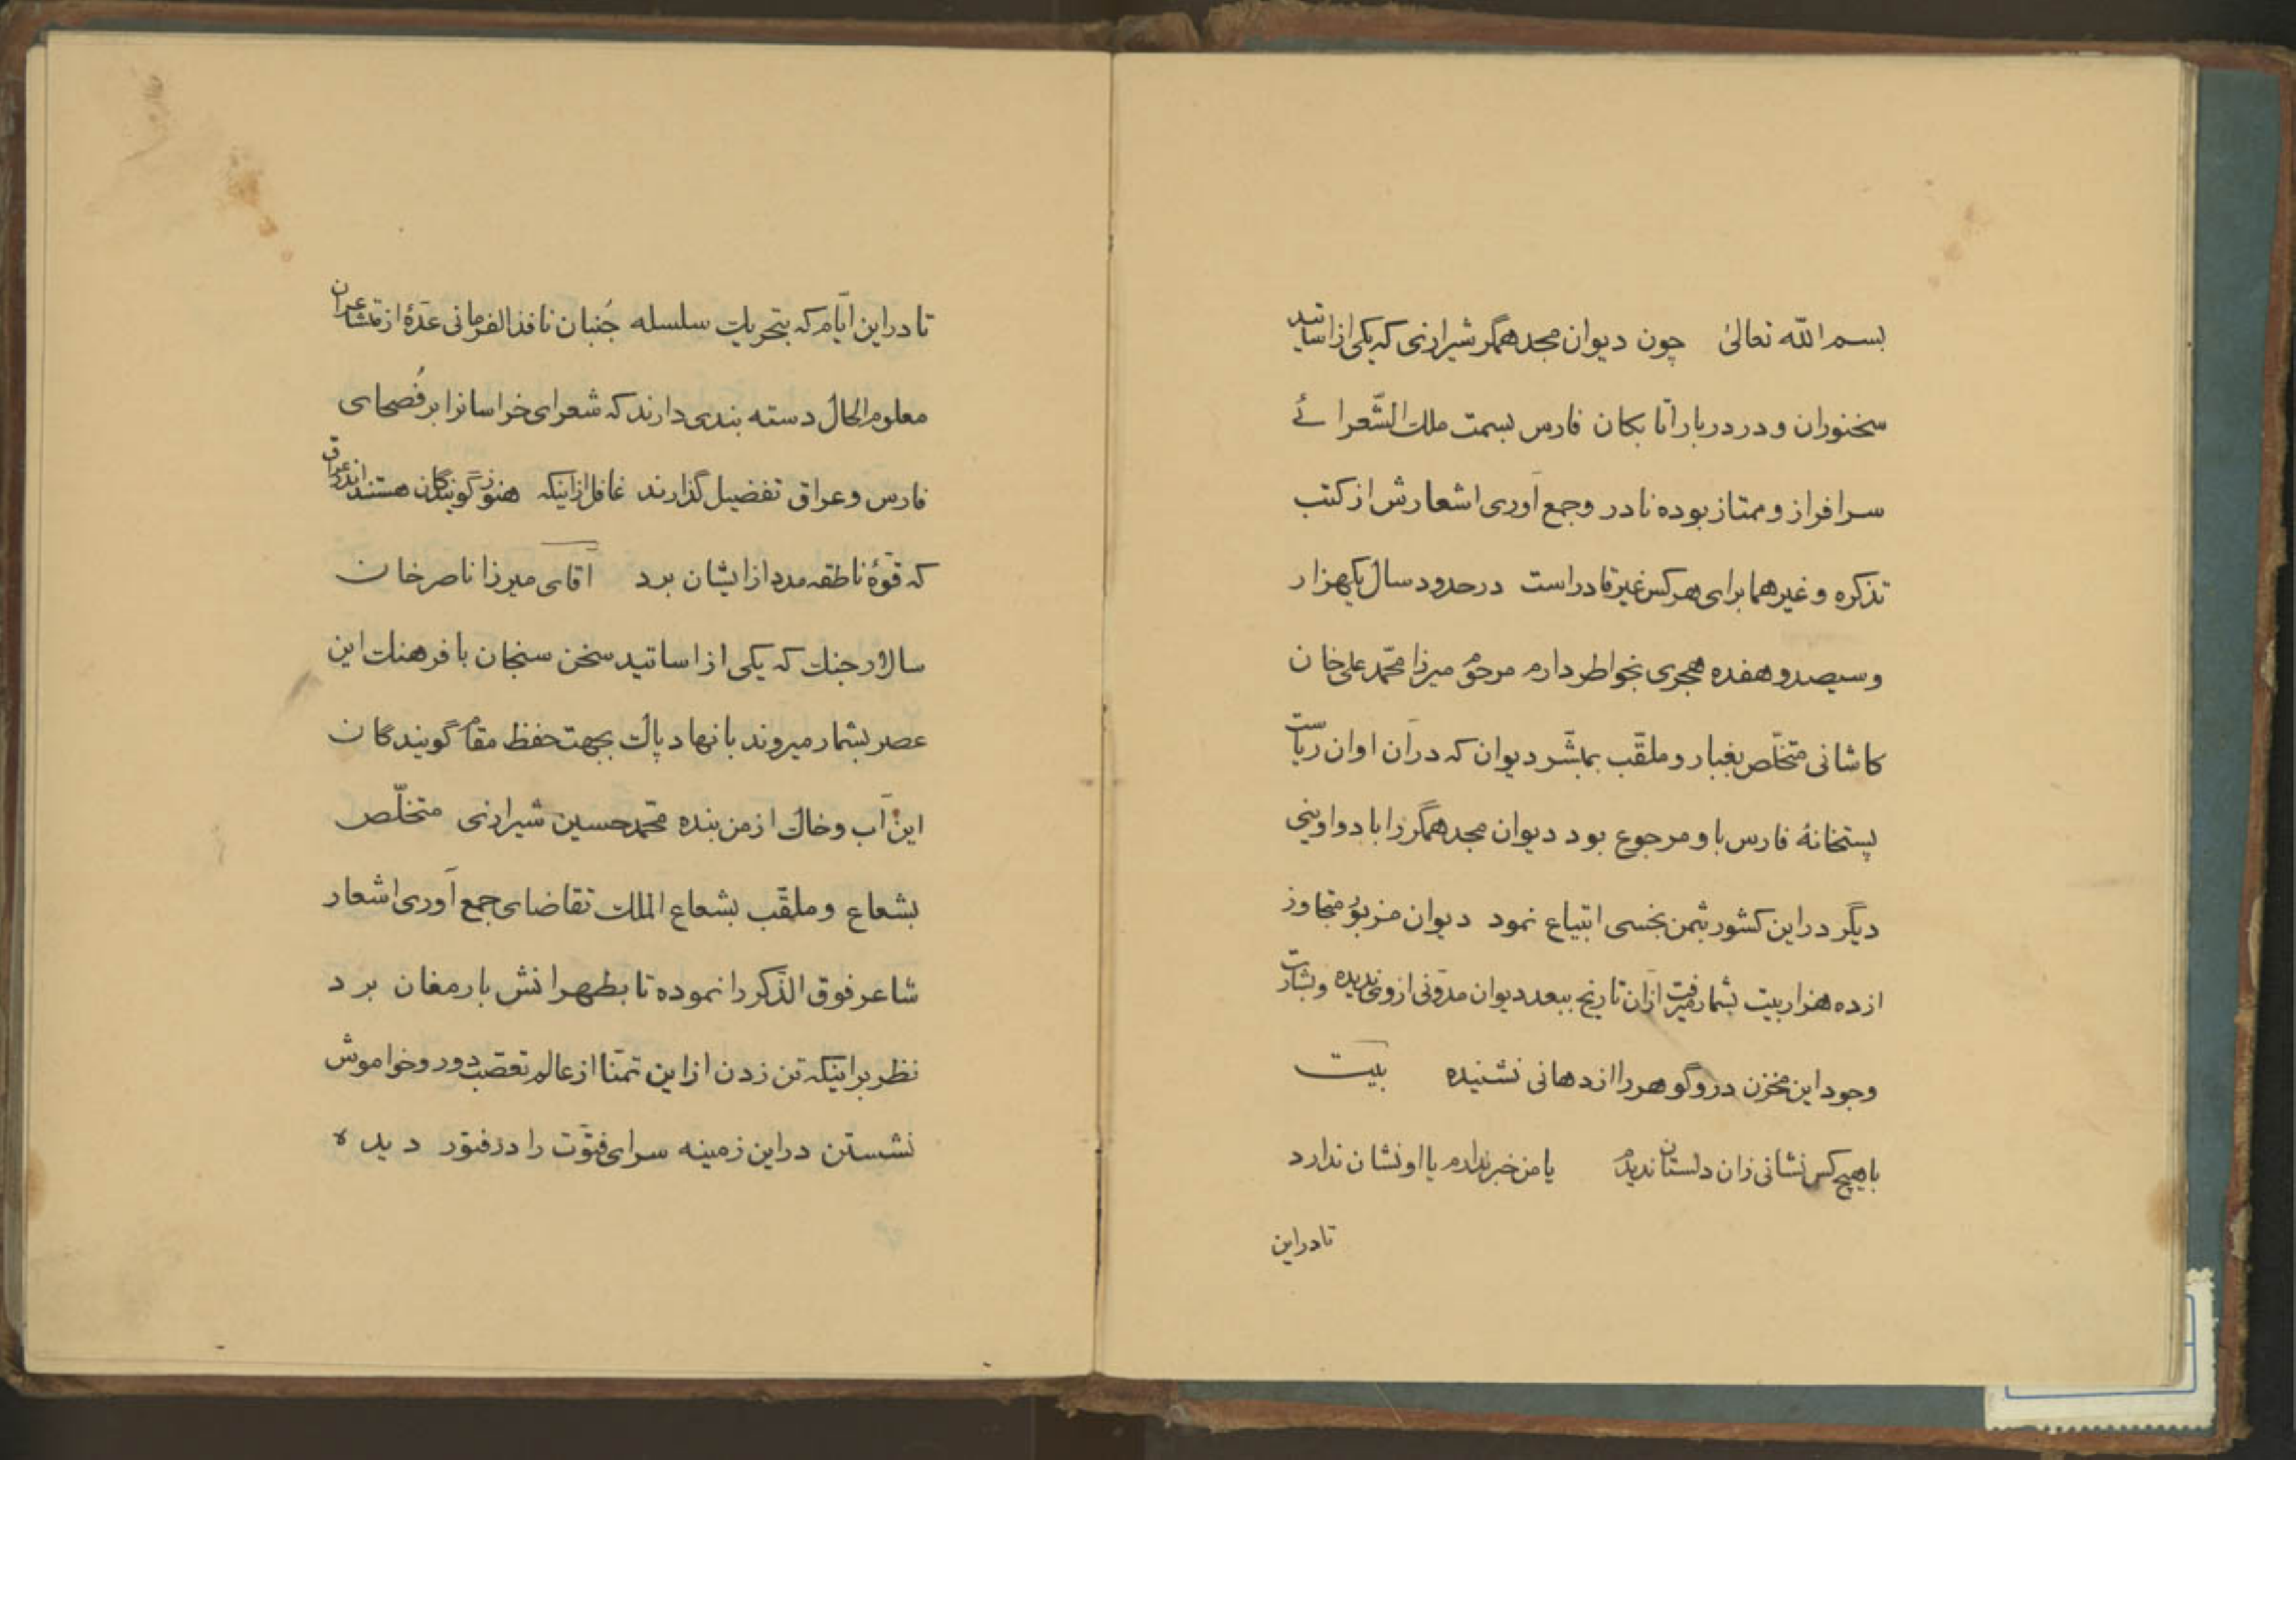 بسم الله تعالیٰ چون دیوان مجد همگر شیرازی که یکی از اساتید
سخنوران و در دربار اتابکان فارس بسمت ملک الشّعرائے
سرافراز و ممتاز بوده نادر و جمع آوری اشعارش از کتب
تذکره و غیرهما برای هر کس غیر قادر است در حدود سال یکهزار
و سیصد و هفده هجری بخواطر دارم مرحوم میرزا محمّد علی خان
کاشانی متخلّص بغبار و ملقّب بمبشّر دیوان که در آن اوان ریاست
پستخانهٔ فارس باو مرجوع بود دیوان مجد همگر را با دواوینی
دیگر در این کشور بثمن بخسی ابتیاع نمود دیوان مزبور متجاوز
از ده هزار بیت بشمار میرفت از آن تاریخ ببعد دیوان مدوّنی از وی ندیده و بشارت
وجود این مخزن در و گوهر را از دهانی نشنیده بیت
با هیچ کس نشانی زان دلستان ندیدم یا من خبر ندارم یا او نشان ندارد
تا در این
تا در این ایّام که بتحریک سلسله جُنبان نافذ الفرمانی عدّهٔ از متشاعران
معلوم الحال دسته بندی دارند که شعرای خراسانرا بر فُصحای
فارس و عراق تفضیل گذارند غافل از اینکه هنوز گویندگان هستند اندر عراق
که قوّهٔ ناطقه مدد از ایشان برد آقای میرزا ناصر خان
سالار جنگ که یکی از اساتید سخن سنجان با فرهنک این
عصر بشمار میروند با نهاد پاک بجهت حفظ مقام گویندگان
این آب و خاک از من بنده محمّد حسین شیرازی متخلّص
بشعاع و ملقّب بشعاع الملک تقاضای جمع آوری اشعار
شاعر فوق الذّکر را نموده تا بطهرانش بارمغان برد
نظر بر اینکه تن زدن از این تمنّا از عالم تعصّب دور و خواموش
نشستن در این زمینه سرای فتوّت را در فتور دیده